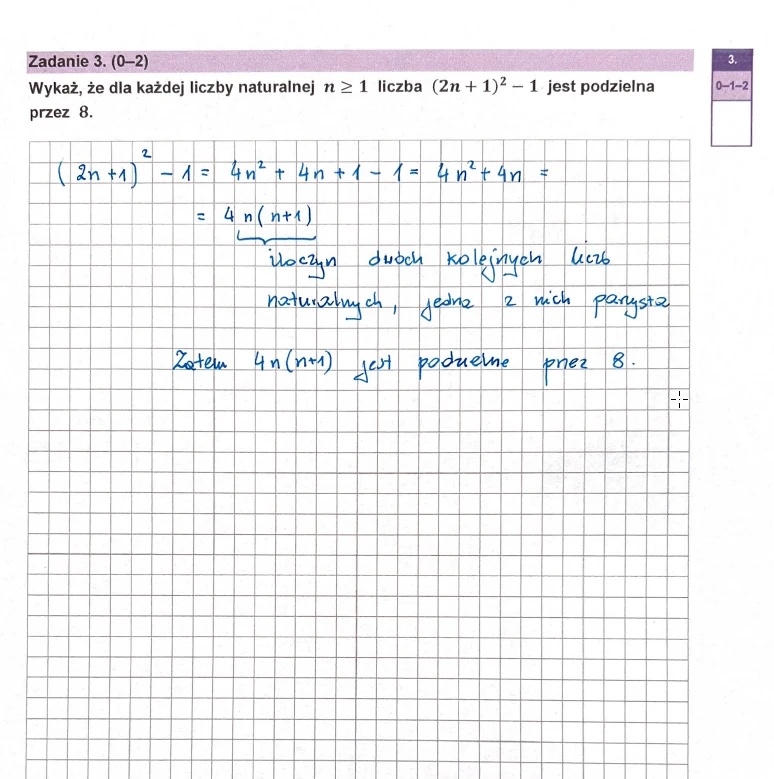 Zadanie 3. (0–2)
Wykaż, że dla każdej liczby naturalnej n ≥ 1 liczba (2n + 1)² − 1 jest podzielna
przez 8.
3.
0–1–2
(2n+1)² − 1 = 4n² + 4n + 1 − 1 = 4n² + 4n =
= 4n(n+1)
iloczyn dwóch kolejnych liczb
naturalnych, jedna z nich parzysta
Zatem 4n(n+1) jest podzielne przez 8.